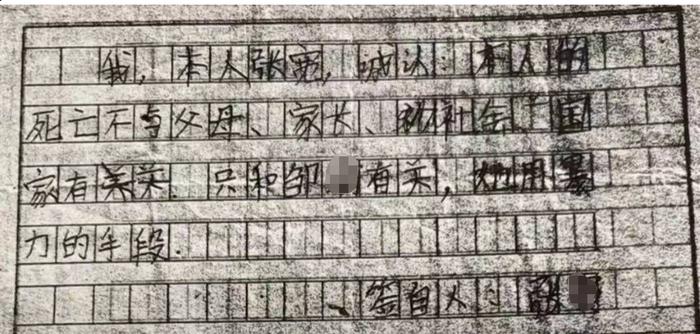 我,本人张宽,诚认:本人的
死亡不与父母、家长、和社会、国
家有关,只和邹有关,她用暴
力的手段.
签自人:张